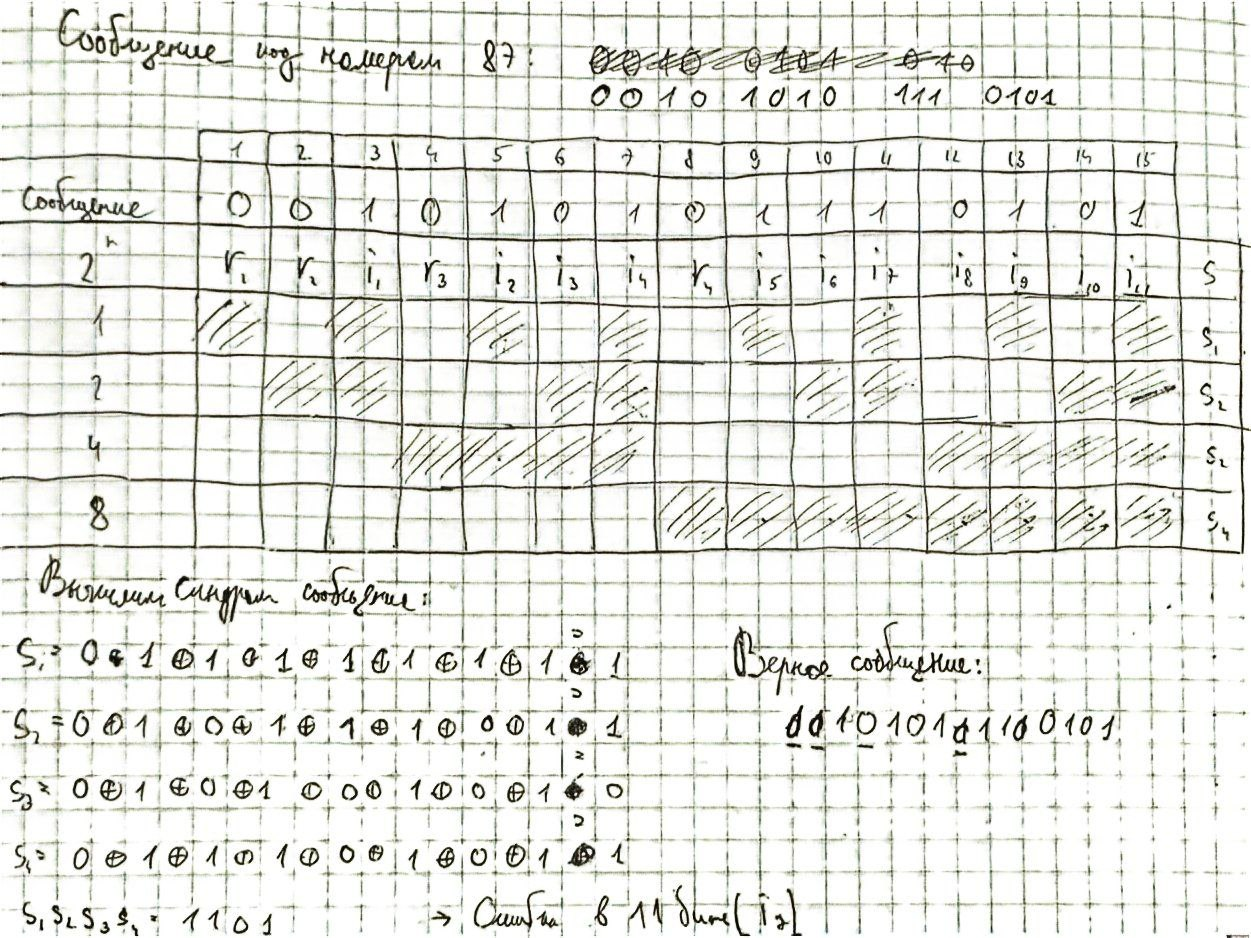 Сообщение под номером 87:
0010 1010 111 0101
1 2 3 4 5 6 7 8 9 10 11 12 13 14 15
Сообщение 0 0 1 0 1 0 1 0 1 1 1 0 1 0 1
2ⁿ r₁ r₂ i₁ r₃ i₂ i₃ i₄ r₄ i₅ i₆ i₇ i₈ i₉ i₁₀ i₁₁ S
1 S₁
2 S₂
4 S₂
8 S₄
Вычислим синдром сообщение:
S₁= 0 ⊕ 1 ⊕ 1 ⊕ 1 ⊕ 1 ⊕ 1 ⊕ 1 ⊕ 1 = 1
S₂ = 0 ⊕ 1 ⊕ 0 ⊕ 1 ⊕ 1 ⊕ 1 ⊕ 0 ⊕ 1 = 1
S₃= 0 ⊕ 1 ⊕ 0 ⊕ 1 ⊕ 0 ⊕ 1 ⊕ 0 ⊕ 1 = 0
S₄= 0 ⊕ 1 ⊕ 1 ⊕ 1 ⊕ 0 ⊕ 1 ⊕ 0 ⊕ 1 = 1
S₁S₂S₃S₄ = 1101 → Ошибка в 11 бите (i₇)
Верное сообщение:
001010101100101